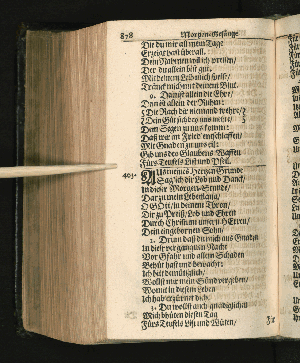 878 Morgen-Gesänge
Die du mir all mein Tage
Erzeigt hast überall.
Dein Nahmen will ich preisen/
Der du allein bist gut.
Mit deinem Leib mich speiß/
Tränck mich mit deinem Blut.
9. Dein ist allein die Ehre/
Dein ist allein der Ruhm:
Die Rach dir niemand wehre/
Dein
Seegen zu uns komm:
Daß wir im Fried entschlaffen/
Mit Gnaden zu uns eil:
Gib uns des Glaubens Waffen
Fürs Teufels List und Pfeil.
403. Aus meines Hertzen Grunde
Sag ich dir Lob und Danck/
In dieser Morgen-Stunde/
Darzu mein Lebenlang/
O GOtt/ in deinem Thron/
Dir zu Preiß/ Lob und Ehren
Durch Christum unsern HErren/
Dein eingebornen Sohn/
2. Darum daß du mich aus Gnaden
In dieser vergangnen Nacht
Vor Gfahr und allem Schaden
Behüt hast und bewacht:
Ich bitt demütiglich/
Wollst mir mein Sünd vergeben/
Womit in diesem Leben
Ich hab erzürnet dich.
3. Du wollst auch gnädiglichen
Mich bhüten diesen Tag
Fürs Teufels List und Wüten/
Für